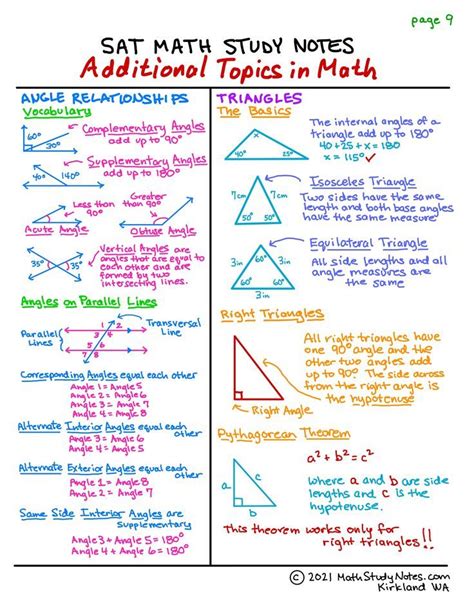 page 9
SAT MATH STUDY NOTES
Additional Topics in Math
ANGLE RELATIONSHIPS
Vocabulary
60°
30°
Complementary Angles
add up to 90°
Supplementary Angles
add up to 180°
40°
140°
Less than
90°
Acute Angle
Greater
than 90°
Obtuse Angle
35°
35°
Vertical Angles are
angles that are equal to
each other and are
formed by two
intersecting lines.
Angles on Parallel Lines
Parallel
Lines
1 2
3 4
5 6
7 8
Transversal
Line
Corresponding Angles equal each other
Angle 1 = Angle 5
Angle 2 = Angle 6
Angle 3 = Angle 7
Angle 4 = Angle 8
Alternate Interior Angles equal each
other
Angle 3 = Angle 6
Angle 4 = Angle 5
Alternate Exterior Angles equal each
other
Angle 1 = Angle 8
Angle 2 = Angle 7
Same Side Interior Angles are
Supplementary
Angle 3 + Angle 5 = 180°
Angle 4 + Angle 6 = 180°
TRIANGLES
The Basics
x
40°
25°
The internal angles of a
triangle add up to 180°
40 + 25 + x = 180
x = 115°
7cm
7cm
50°
50°
Isosceles Triangle
Two sides have the same
length and both base angles
have the same measure
60°
3in
3in
60°
60°
3in
Equilateral Triangle
All side lengths and all
angle measures are
the same
Right Triangles
Right Angle
All right triangles have
one 90° angle and the
other two angles add
up to 90°. The side across
from the right angle is
the hypotenuse
Pythagorean Theorem
a
c
b
a² + b² = c²
where a and b are side
lengths and c is the
hypotenuse.
This theorem works only for
right triangles!!
© 2021 MathStudyNotes.com
Kirkland WA